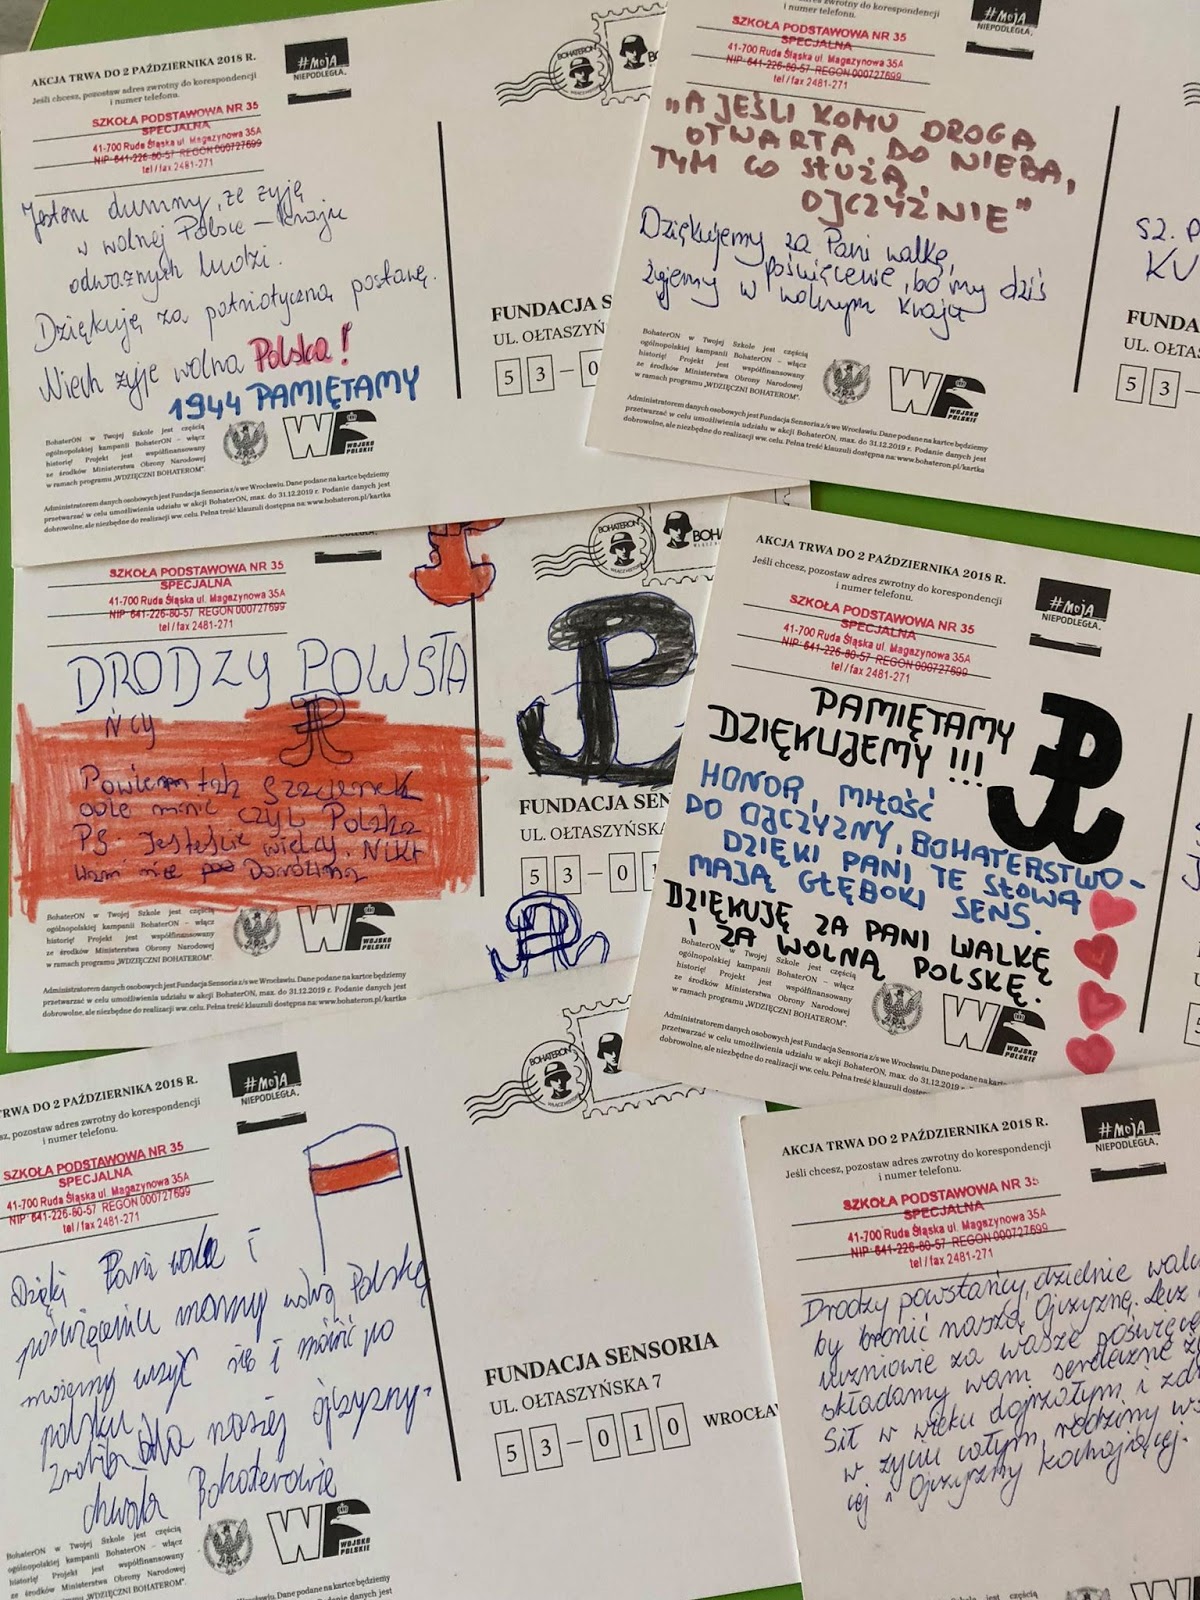 AKCJA TRWA DO 2 PAŹDZIERNIKA 2018 R.
Jeśli chcesz, pozostaw adres zwrotny do korespondencji
i numer telefonu.
#MOJA
NIEPODLEGŁA.
SZKOŁA PODSTAWOWA NR 35
SPECJALNA
41-700 Ruda Śląska ul. Magazynowa 35A
NIP 641-226-80-57 REGON 000727699
tel/fax 2481-271
BOHATERON
Jestem dumny, że żyję
w wolnej Polsce – kraju
odważnych ludzi.
Dziękuję za patriotyczną postawę.
Niech żyje wolna Polska!
1944 PAMIĘTAMY
FUNDACJA S
UL. OŁTASZYŃ
53-0
BohaterON w Twojej Szkole jest częścią
ogólnopolskiej kampanii BohaterON – włącz
historię! Projekt jest współfinansowany
ze środków Ministerstwa Obrony Narodowej
w ramach programu „WDZIĘCZNI BOHATEROM".
WOJSKO
POLSKIE
Administratorem danych osobowych jest Fundacja Sensoria z/s we Wrocławiu. Dane podane na kartce będziemy
przetwarzać w celu umożliwienia udziału w akcji BohaterON, max. do 31.12.2019 r. Podanie danych jest
dobrowolne, ale niezbędne do realizacji ww. celu. Pełna treść klauzuli dostępna na: www.bohateron.pl/kartka
i numer telefonu.
#MOJA
NIEPODLEGŁA.
SZKOŁA PODSTAWOWA NR 35
SPECJALNA
41-700 Ruda Śląska ul. Magazynowa 35A
NIP 641-226-80-57 REGON 000727699
tel/fax 2481-271
„A JEŚLI KOMU DROGA
OTWARTA DO NIEBA,
TYM CO SŁUŻĄ
OJCZYŹNIE"
Dziękujemy za Pani walkę,
poświęcenie, bo my dziś
żyjemy w wolnym kraju
SZ. P
KU
FUNDA
UL. OŁTAS
53-
BohaterON w Twojej Szkole jest częścią
ogólnopolskiej kampanii BohaterON – włącz
historię! Projekt jest współfinansowany
ze środków Ministerstwa Obrony Narodowej
w ramach programu „WDZIĘCZNI BOHATEROM".
WOJSKO
POLSKIE
Administratorem danych osobowych jest Fundacja Sensoria z/s we Wrocławiu. Dane podane na kartce będziemy
przetwarzać w celu umożliwienia udziału w akcji BohaterON, max. do 31.12.2019 r. Podanie danych jest
dobrowolne, ale niezbędne do realizacji ww. celu. Pełna treść klauzuli dostępna na: www.bohateron.pl/kartka
SZKOŁA PODSTAWOWA NR 35
SPECJALNA
41-700 Ruda Śląska ul. Magazynowa 35A
NIP 641-226-80-57 REGON 000727699
tel/fax 2481-271
BOHATERON
DRODZY POWSTA
ŃCY
Powiem tak
Polska
PS. Jesteście wielcy. Nikt
wam nie
FUNDACJA SEN
UL. OŁTASZYŃSKA
53-01
BohaterON w Twojej Szkole jest częścią
ogólnopolskiej kampanii BohaterON – włącz
historię! Projekt jest współfinansowany
ze środków Ministerstwa Obrony Narodowej
w ramach programu „WDZIĘCZNI BOHATEROM".
WOJSKO
POLSKIE
Administratorem danych osobowych jest Fundacja Sensoria z/s we Wrocławiu. Dane podane na kartce będziemy
przetwarzać w celu umożliwienia udziału w akcji BohaterON, max. do 31.12.2019 r. Podanie danych jest
dobrowolne, ale niezbędne do realizacji ww. celu. Pełna treść klauzuli dostępna na: www.bohateron.pl/kartka
AKCJA TRWA DO 2 PAŹDZIERNIKA 2018 R.
Jeśli chcesz, pozostaw adres zwrotny do korespondencji
i numer telefonu.
#MOJA
NIEPODLEGŁA.
SZKOŁA PODSTAWOWA NR 35
SPECJALNA
41-700 Ruda Śląska ul. Magazynowa 35A
NIP 641-226-80-57 REGON 000727699
tel/fax 2481-271
PAMIĘTAMY
DZIĘKUJEMY !!!
HONOR, MIŁOŚĆ
DO OJCZYZNY, BOHATERSTWO-
DZIĘKI PANI TE SŁOWA
MAJĄ GŁĘBOKI SENS.
DZIĘKUJĘ ZA PANI WALKĘ
I ZA WOLNĄ POLSKĘ.
BohaterON w Twojej Szkole jest częścią
ogólnopolskiej kampanii BohaterON – włącz
historię! Projekt jest współfinansowany
ze środków Ministerstwa Obrony Narodowej
w ramach programu „WDZIĘCZNI BOHATEROM".
WOJSKO
POLSKIE
Administratorem danych osobowych jest Fundacja Sensoria z/s we Wrocławiu. Dane podane na kar
przetwarzać w celu umożliwienia udziału w akcji BohaterON, max. do 31.12.2019 r.
dobrowolne, ale niezbędne do realizacji ww. celu. Pełna treść klauzuli dostępna
TRWA DO 2 PAŹDZIERNIKA 2018 R.
sz, pozostaw adres zwrotny do korespondencji
i numer telefonu.
#MOJA
NIEPODLEGŁA.
SZKOŁA PODSTAWOWA NR 35
SPECJALNA
41-700 Ruda Śląska ul. Magazynowa 35A
NIP 641-226-80-57 REGON 000727699
tel/fax 2481-271
BOHATERON
Dzięki Pani walce i
poświęceniu mamy wolną Polskę
możemy uczyć się i mówić po
polsku.
dla naszej ojczyzny.
chwała Bohaterowie
FUNDACJA SENSORIA
UL. OŁTASZYŃSKA 7
53-010 WROCŁAW
BohaterON w Twojej Szkole jest częścią
ogólnopolskiej kampanii BohaterON – włącz
historię! Projekt jest współfinansowany
ze środków Ministerstwa Obrony Narodowej
w ramach programu „WDZIĘCZNI BOHATEROM".
WOJSKO
POLSKIE
AKCJA TRWA DO 2 PAŹDZIERNIKA 2018 R.
Jeśli chcesz, pozostaw adres zwrotny do korespondencji
i numer telefonu.
#MOJA
NIEPODLEGŁA.
SZKOŁA PODSTAWOWA NR 35
SPECJALNA
41-700 Ruda Śląska ul. Magazynowa 35A
NIP 641-226-80-57 REGON 000727699
tel/fax 2481-271
Drodzy powstańcy, dzielnie walc
by bronić naszą Ojczyznę. Lecz
uczniowie za wasze poświęce
składamy wam serdeczne ż
Sił w wieku dojrzałym i zd
w życiu całym, rodziny ws
cej i Ojczyzny kochającej.